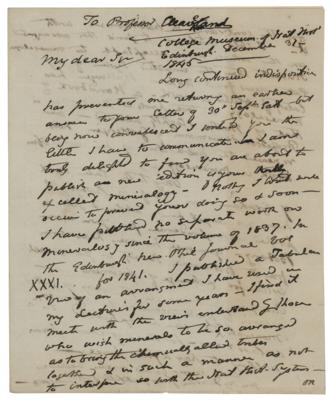 To Professor
College Museum of Nat Hist
Edinburgh December 31
1845
My dear Sir
Long continued indisposition
has prevented me returning an earlier
answer to your letter of 30 Sept last but
being now convalesced I send you the
little I have to communicate. I am
truly delighted to find you are about to
publish a new edition of your
excelled mineralogy
occur to prevent your doing so & soon—
I have published no separate work on
Mineralogy since the volume of 1837. In
the Edinburgh New Phil Journal Vol
XXXI. for 1841. I published a Tabular
View of an arrangement I have used in
my lectures for some years – I find it
meets with the views of those
who wish minerals to be so arranged
as to bring the chemically allied
together & in such a manner as not
to interfere so with the Nat Hist System—
or